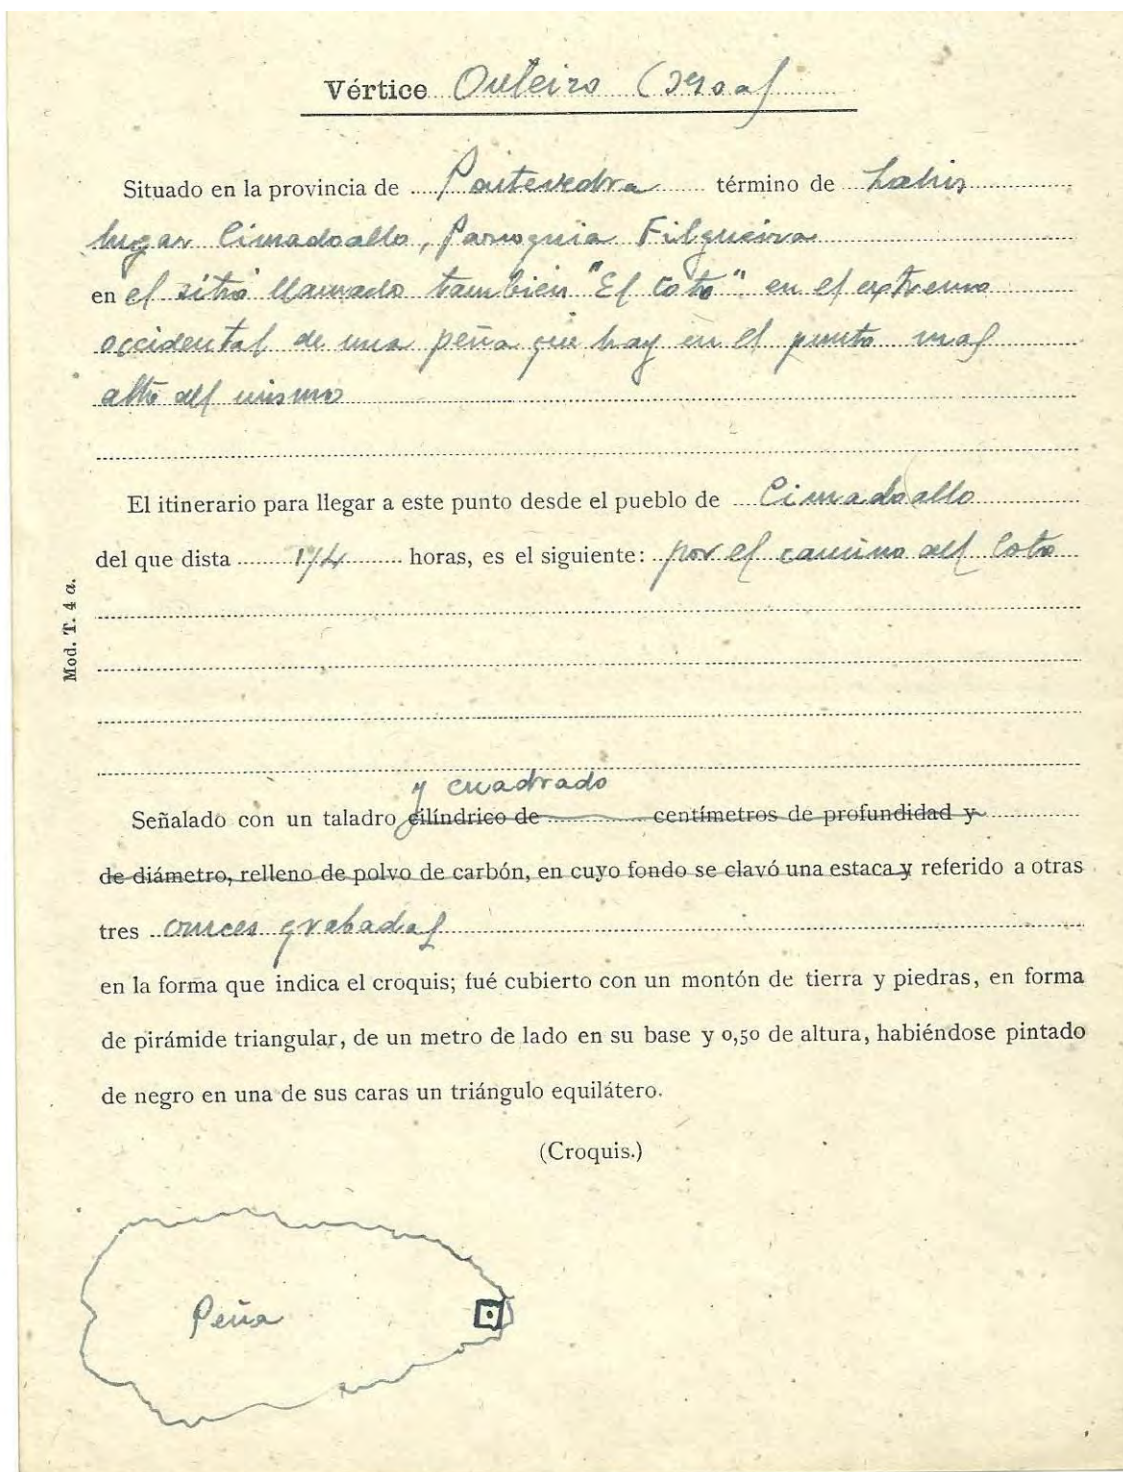 Vértice Outeiro
Situado en la provincia de Pontevedra término de Lalin
lugar Cimadoallo, Parroquia Filgueira
en el sitio llamado también "El Coto" en el extremo
occidental de una peña que hay en el punto mas
alto del mismo
El itinerario para llegar a este punto desde el pueblo de Cimadoallo
del que dista 1/4 horas, es el siguiente: por el camino del Coto
Mod. T. 4 a.
y cuadrado
Señalado con un taladro cilíndrico de centímetros de profundidad y
de diámetro, relleno de polvo de carbón, en cuyo fondo se clavó una estaca y referido a otras
tres cruces grabadas
en la forma que indica el croquis; fué cubierto con un montón de tierra y piedras, en forma
de pirámide triangular, de un metro de lado en su base y 0,50 de altura, habiéndose pintado
de negro en una de sus caras un triángulo equilátero.
(Croquis.)
Peña